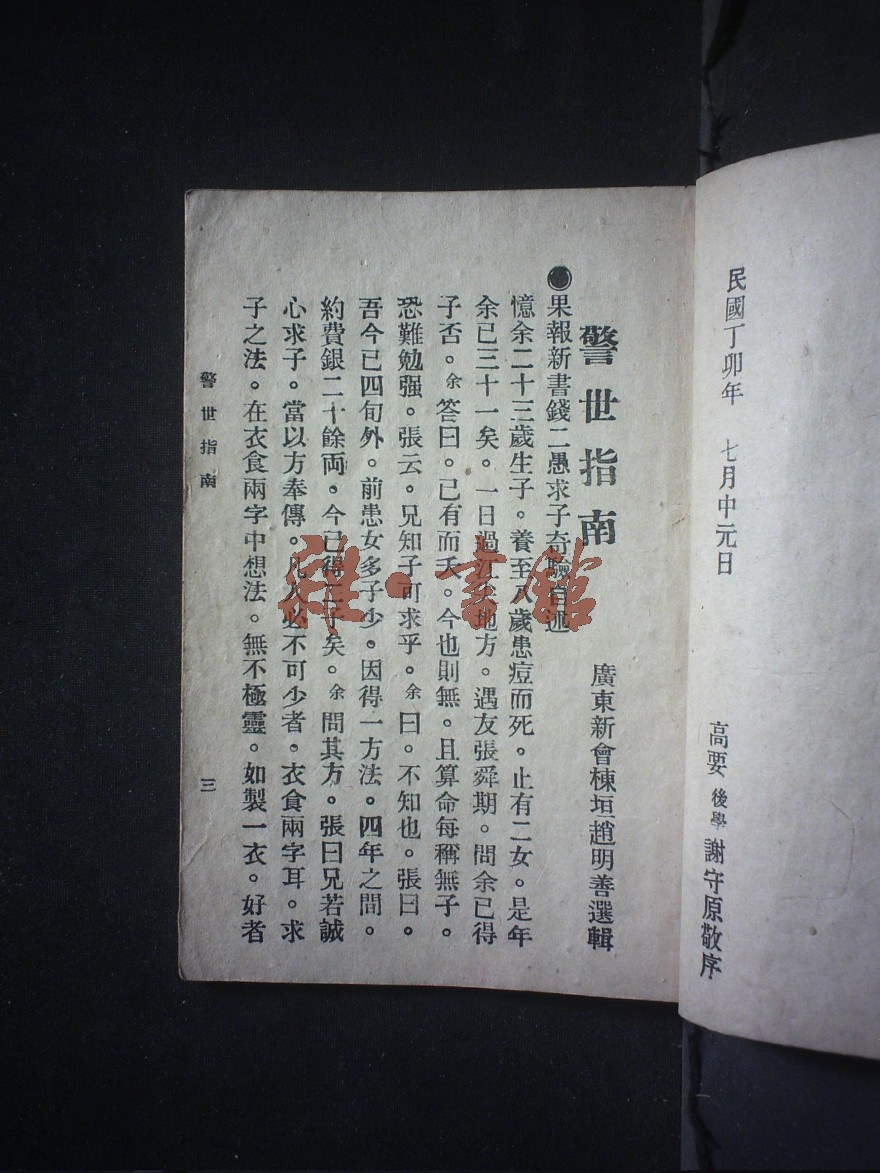 民國丁卯年 七月中元日
高要後學謝守原敬序
警世指南
廣東新會棟垣趙明善選輯
●果報新書錢二愚求子奇驗自述
憶余二十三歲生子。養至八歲患痘而死。止有二女。是年
余已三十一矣。一日過江尖地方。遇友張舜期。問余已得
子否。余答曰。已有而夭。今也則無。且算命每稱無子。
恐難勉强。張云。兄知子可求乎。余曰。不知也。張曰。
吾今已四旬外。前患女多子少。因得一方法。四年之間。
約費銀二十餘両。今已得三子矣。余問其方。張曰兄若誠
心求子。當以方奉傳。凡人必不可少者。衣食兩字耳。求
子之法。在衣食兩字中想法。無不極靈。如製一衣。好者
警世指南
三
雜·書館